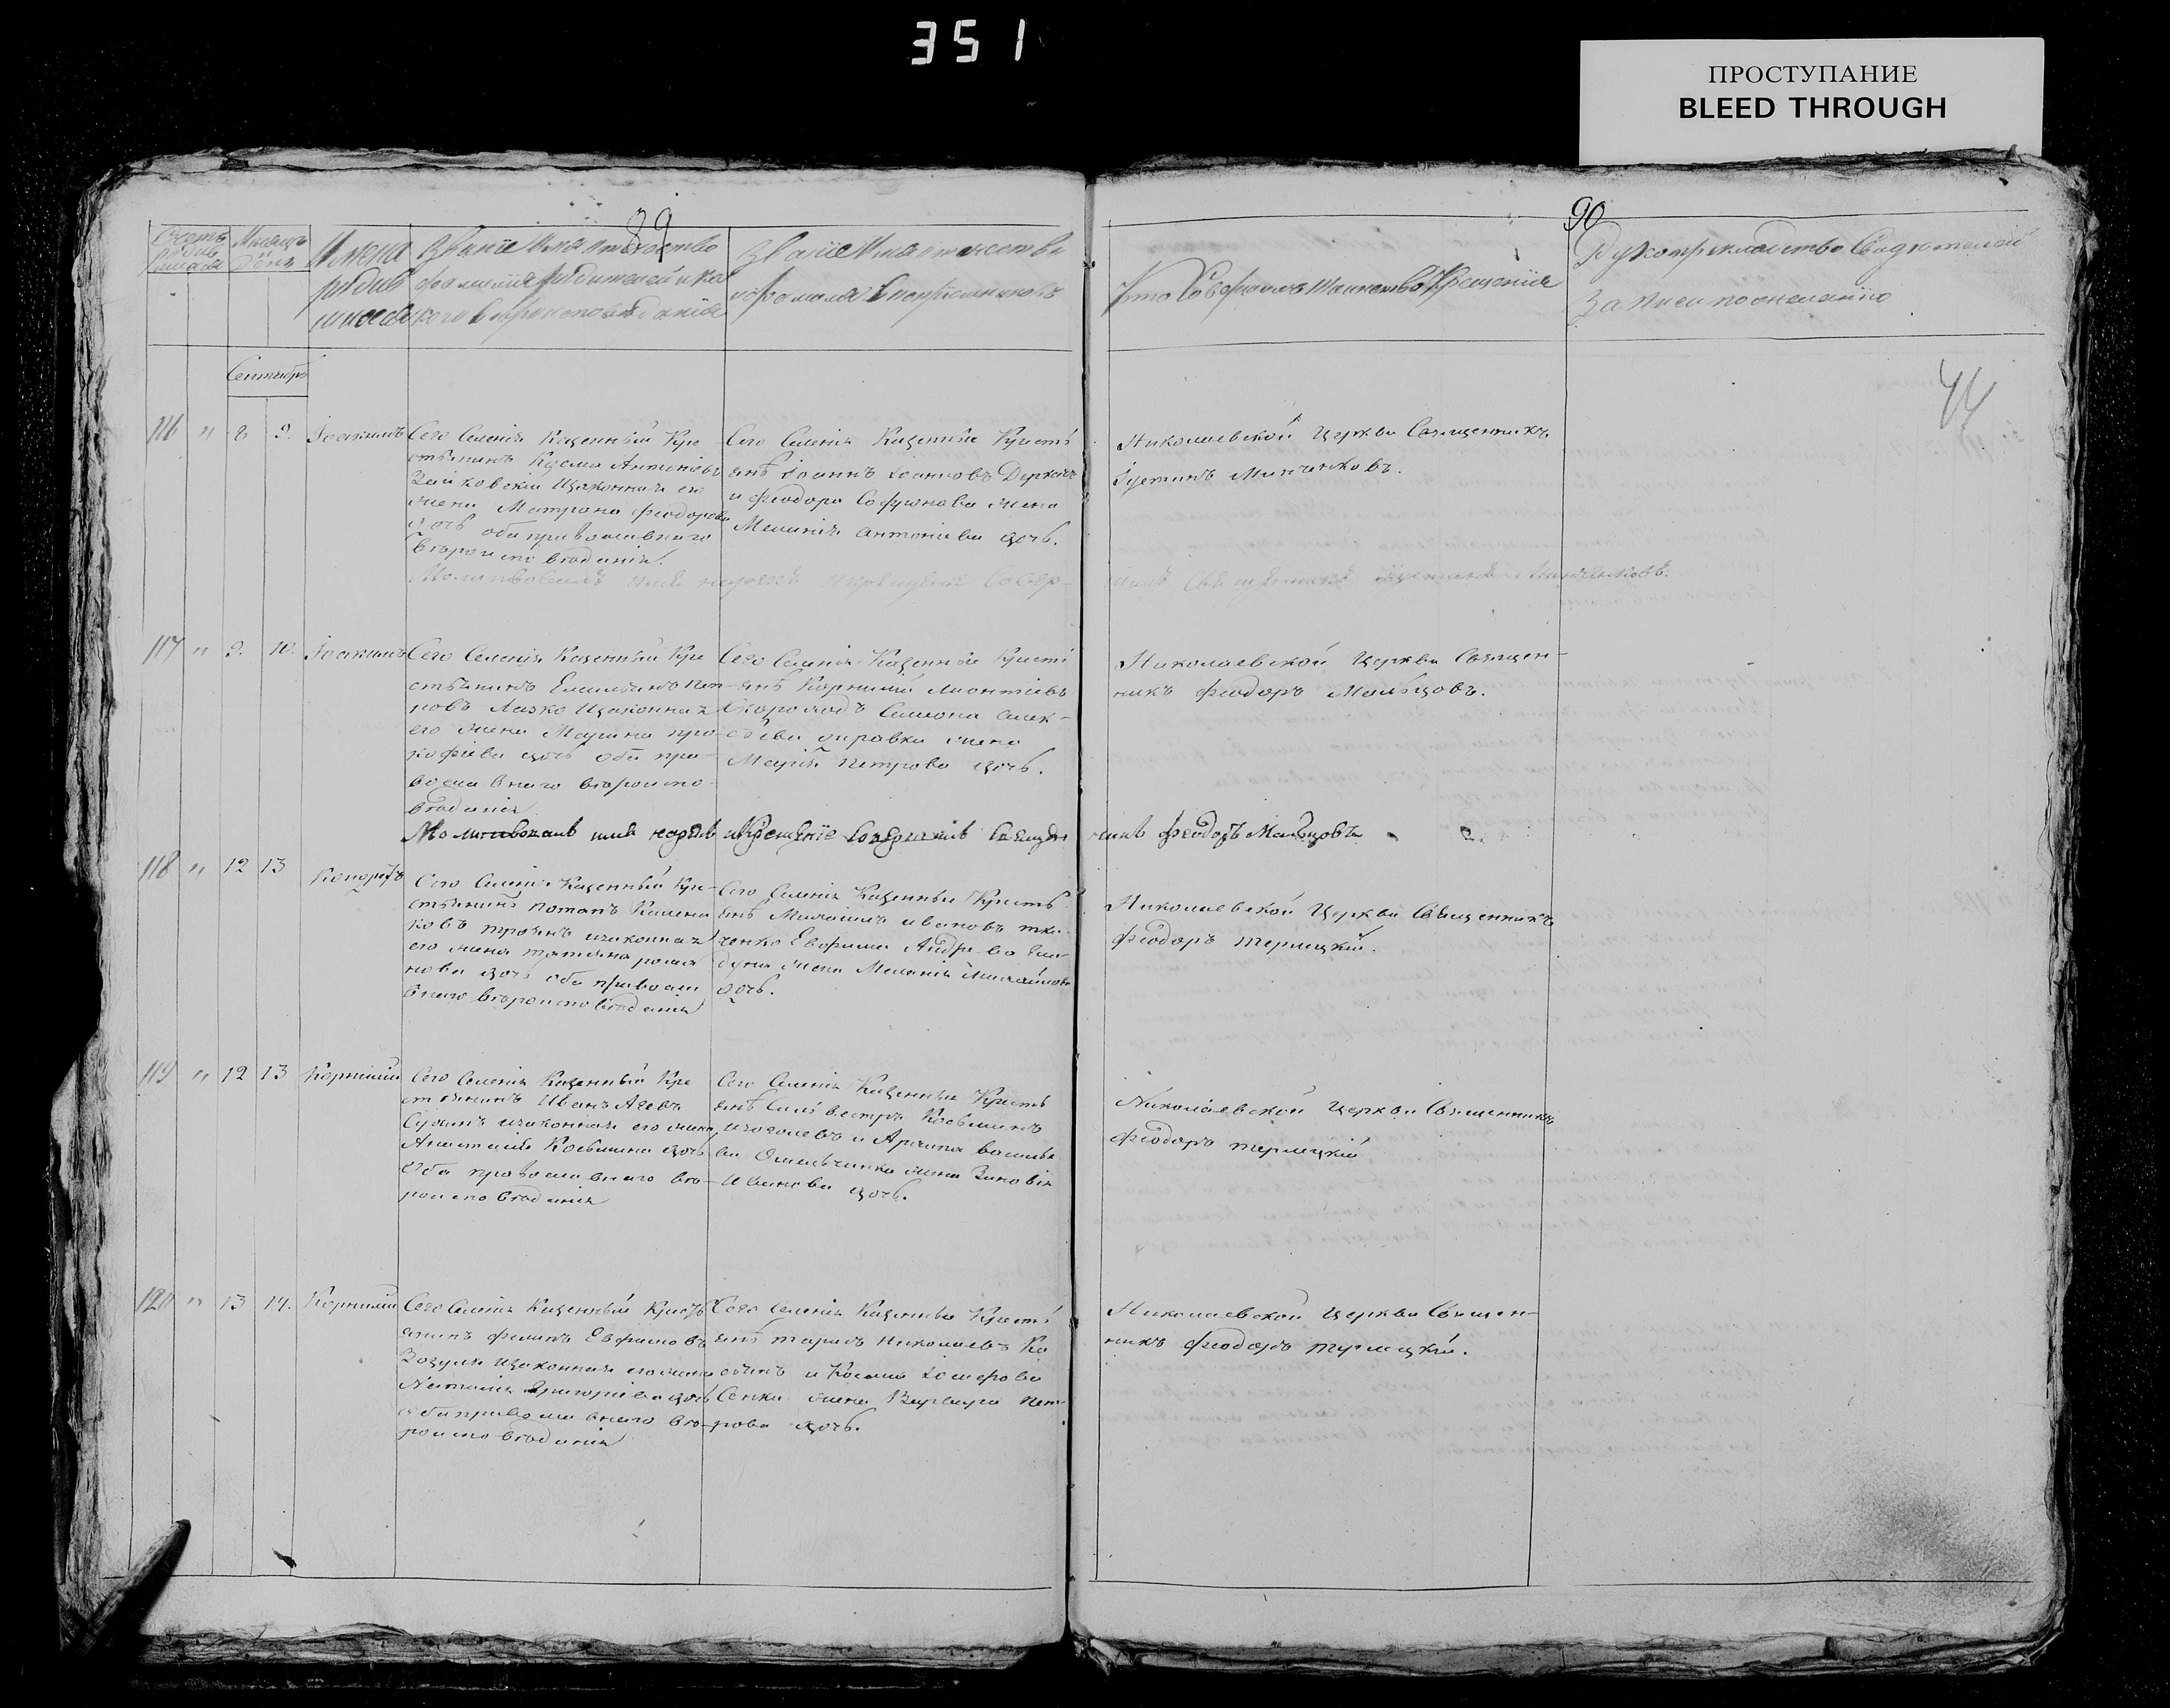 351
ПРОСТУПАНИЕ
BLEED THROUGH
89
Счетъ родившихся
Мѣсяцъ и День
Имена родившихся
Званіе Имя отчество
фамилія родителей и ка
кого вѣроисповѣданія
Званіе Имя отчество
и фамилія воспріемниковъ
90
Кто Совершалъ таинство Крещенія
Рукоприкладство Свидѣтелей
Записи по желанію
44
Сентябрь
116 " 8 9. Іоакимъ
Сего Селенія Казенный Кре
стьянинъ Косма Антоновъ
законная его
жена Матрона Феодорова
дочь оба православнаго
вѣроисповѣданія.
Сего Селенія Казенные Кресть
янѣ Іоаннъ Іоанновъ Деркачъ
и Феодора Софронова жена
Меланія Антоніева дочь.
Николаевской Церкви Священникъ
Іустинъ Минченковъ.
Молитвовалъ имя нарекъ и крещеніе Совер-
шилъ Священникъ Іустинъ Минченковъ.
117 " 9. 10. Іоакимъ
Сего Селенія Казенный Кре
стьянинъ Емиліанъ Пет
ровъ Лазко Изаконная
его жена Марина Про-
кофіева дочь оба пра-
вославнаго вѣроиспо-
вѣданія
Сего Селенія Казенные Кресть
янѣ Корнилій Леонтіевъ
Скороходъ Симона Алек-
сѣева жена
Марія Петрова дочь.
Николаевской Церкви Священ-
никъ Феодоръ Мальцовъ.
Молитвовалъ имя нарекъ и Крещеніе Совершилъ Священ
никъ Феодоръ Мальцовъ
118 " 12 13
Сего Селенія Казенный Кре-
стьянинъ Потапъ
законная
его жена Татіана Рома
нова дочь оба православ
внаго вѣроисповѣданія
Сего Селенія Казенные Кресть
янѣ Михаилъ Ивановъ Тка
ченко Евфима Андреева
жена Меланія Михайлова
дочь.
Николаевской Церкви Священникъ
Феодоръ Терлецкій.
119 " 12 13 Корнилій
Сего Селенія Казенный Кре
стьянинъ Иванъ
законная его жена
Анастасія Косьмина дочь
Оба православнаго вѣ-
роисповѣданія
Сего Селенія Казенные Кресть
янѣ Сильвестръ Косьминъ
и Архипа Василье
ва Омельченка жена Зиновія
Иванова дочь.
Николаевской Церкви Священникъ
Феодоръ Терлецкій
120 " 13 14. Корнилій
Сего Селенія Казенный Кресть
янинъ Филипъ Евфимовъ
Зозуля Изаконная его жена
Наталія Григоріева дочь
оба православнаго вѣ-
роисповѣданія
Сего Селенія Казенные Кресть
янѣ Тарасъ Николаевъ
и Косьмы
жена Варвара Пет-
рова дочь.
Николаевской Церкви Священ-
никъ Феодоръ Терлецкій.